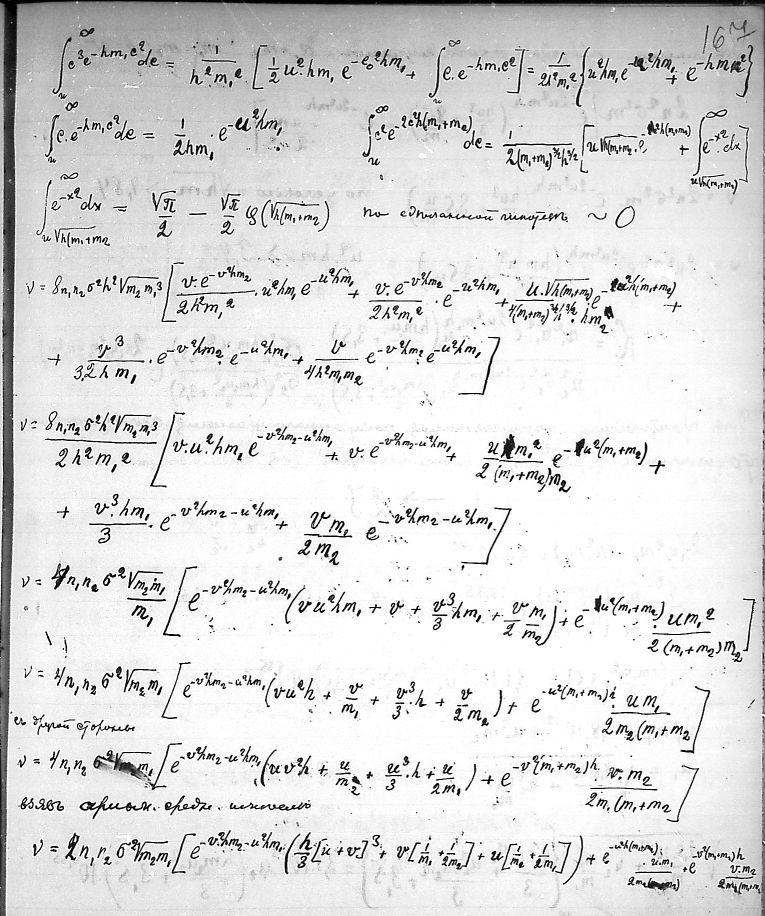 167
∫_u^∞ c³e^{-hm₁c²}dc = 1/(h²m₁²) [ ½ u²hm₁ e^{-c₀²hm₁} + ∫^∞ c.e^{-hm₁c²} ] = 1/(2h²m₁²) { u²hm₁e^{-u²hm₁} + e^{-hmu²} }
∫_u^∞ c.e^{-hm₁c²}dc = 1/(2hm₁) . e^{-u²hm₁} ∫_u^∞ c²e^{-2c²h(m₁+m₂)}dc = 1/(2(m₁+m₂)^{3/2}h^{3/2}) [ u√h(m₁+m₂) . e^{-u²h(m₁+m₂)} + ∫_{u√h(m₁+m₂)}^∞ e^{-x²}dx ]
∫_{u√h(m₁+m₂)}^∞ e^{-x²}dx = √π/2 − √π/2 φ(√h(m₁+m₂)) по сделанной ~ 0
ν = 8n₁n₂σ²h²√m₂m₁³ [ v.e^{-v²hm₂}/(2h²m₁²) . u²hm₁e^{-u²hm₁} + v.e^{-v²hm₂}/(2h²m₁²) . e^{-u²hm₁} + u.√h(m₁+m₂) e^{-u²h(m₁+m₂)}/(4(m₁+m₂)^{3/2}h^{3/2}.hm₂) +
+ v³/(3.2hm₁) . e^{-v²hm₂} . e^{-u²hm₁} + v/(4h²m₁m₂) e^{-v²hm₂} e^{-u²hm₁} ]
ν = 8n₁n₂σ²h²√m₂m₁³/(2h²m₁²) [ v.u².hm₁e^{-v²hm₂-u²hm₁} + v.e^{-v²hm₂-u²hm₁} + um₁²/(2(m₁+m₂)m₂) e^{-u²(m₁+m₂)} +
+ v³.hm₁/3 . e^{-v²hm₂-u²hm₁} + vm₁/(2m₂) e^{-v²hm₂-u²hm₁} ]
ν = 4n₁n₂σ² √m₂m₁/m₁ [ e^{-v²hm₂-u²hm₁}(vu²hm₁ + v + v³/3 hm₁ + v/2 m₁/m₂) + e^{-u²(m₁+m₂)} . um₁²/(2(m₁+m₂)m₂) ]
ν = 4n₁n₂σ²√m₂m₁ [ e^{-v²hm₂-u²hm₁}(vu²h + v/m₁ + v³/3 . h + v/2m₂) + e^{-u²(m₁+m₂)h} . um₁/(2m₂(m₁+m₂)) ]
съ другой стороны
ν = 4n₁n₂σ²√m₂m₁ [ e^{-v²hm₂-u²hm₁}(uv²h + u/m₂ + u³/3 . h + u/2m₁) + e^{-v²(m₁+m₂)h} v.m₂/(2m₁(m₁+m₂)) ]
взявъ средн.
ν = 2n₁n₂σ²√m₂m₁ [ e^{-v²hm₂-u²hm₁}(h/3[u+v]³ + v[1/m₁ + 1/2m₂] + u[1/m₂ + 1/2m₁]) + e^{-u²h(m₁+m₂)} u.m₁/(2m₂(m₁+m₂)) + e^{-v²(m₁+m₂)h} v.m₂/(2m₁(m₁+m₂))